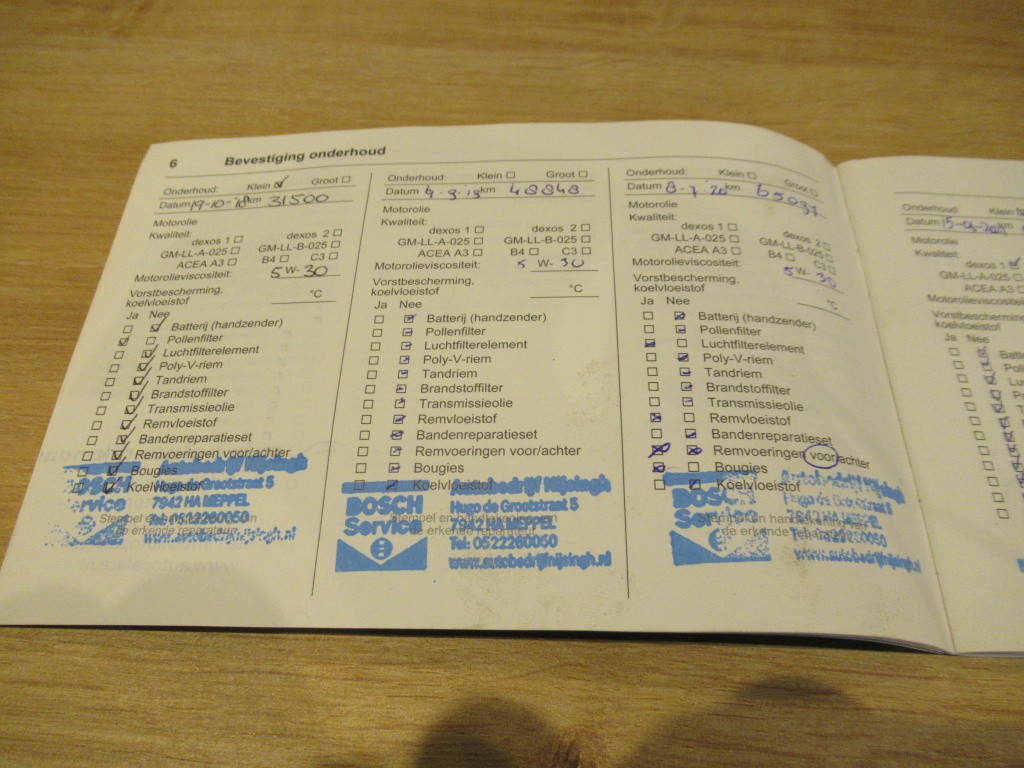 6 Bevestiging onderhoud
Onderhoud: Klein Groot
Datum 19-10-'18 km 31500
Motorolie
Kwaliteit:
dexos 1 dexos 2
GM-LL-A-025 GM-LL-B-025
ACEA A3 B4 C3
Motorolieviscositeit: 5W-30
Vorstbescherming,
koelvloeistof °C
Ja Nee
Batterij (handzender)
Pollenfilter
Luchtfilterelement
Poly-V-riem
Tandriem
Brandstoffilter
Transmissieolie
Remvloeistof
Bandenreparatieset
Remvoeringen voor/achter
Bougies
Koelvloeistof
Autobedrijf Nijsingh
Hugo de Grootstraat 5
7942 HA MEPPEL
Tel: 0522260050
www.autobedrijfnijsingh.nl
Service
Stempel en
de erkende reparateur
Onderhoud: Klein Groot
Datum 4-9-'19 km 48848
Motorolie
Kwaliteit:
dexos 1 dexos 2
GM-LL-A-025 GM-LL-B-025
ACEA A3 B4 C3
Motorolieviscositeit: 5 W- 30
Vorstbescherming,
koelvloeistof °C
Ja Nee
Batterij (handzender)
Pollenfilter
Luchtfilterelement
Poly-V-riem
Tandriem
Brandstoffilter
Transmissieolie
Remvloeistof
Bandenreparatieset
Remvoeringen voor/achter
Bougies
Koelvloeistof
BOSCH
Service
Autobedrijf Nijsingh
Hugo de Grootstraat 5
7942 HA MEPPEL
Tel: 0522260050
www.autobedrijfnijsingh.nl
Stempel en handtekening van
de erkende reparateur
Onderhoud: Klein Groot
Datum 8-7-'20 km 65037
Motorolie
Kwaliteit:
dexos 1 dexos 2
GM-LL-A-025 GM-LL-B-025
ACEA A3 B4 C3
Motorolieviscositeit: 5 W- 30
Vorstbescherming,
koelvloeistof °C
Ja Nee
Batterij (handzender)
Pollenfilter
Luchtfilterelement
Poly-V-riem
Tandriem
Brandstoffilter
Transmissieolie
Remvloeistof
Bandenreparatieset
Remvoeringen voor/achter
Bougies
Koelvloeistof
BOSCH
Service
Autobedrijf Nijsingh
Hugo de Grootstraat 5
7942 HA MEPPEL
Tel: 0522260050
www.autobedrijfnijsingh.nl
Stempel en handtekening van
de erkende reparateur
Onderhoud: Klein
Datum km
Motorolie
Kwaliteit:
dexos 1
GM-LL-A-025
ACEA A3
Vorstbescherming
koelvloeistof
Ja Nee